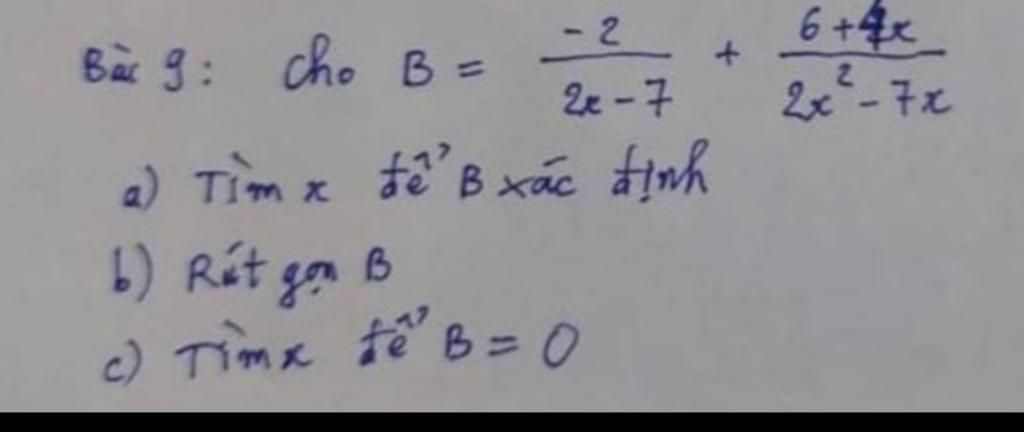 Bài 9: Cho B = -2/(2x-7) + (6+4x)/(2x²-7x)
a) Tìm x để B xác định
b) Rút gọn B
c) Tìm x để B = 0